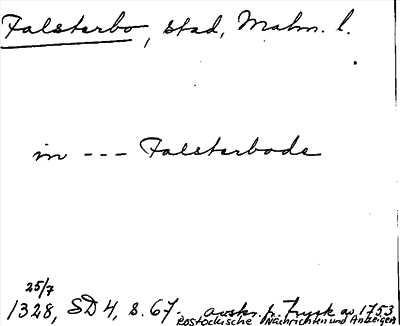 Falsterbo, stad, Malm. l.
in --- Falsterbode
25/7
1328, SD 4, s. 67. avskr. fr. tryck av 1753
Rostockische Nachrichten und Anzeigen